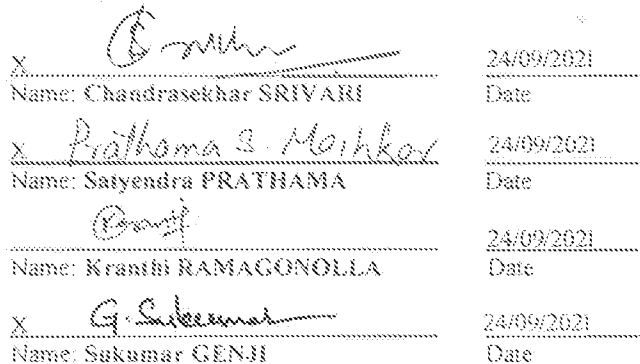 X 24/09/2021
Name: Chandrasekhar SRIVARI Date
X Prathama S. Mashkar 24/09/2021
Name: Satyendra PRATHAMA Date
24/09/2021
Name: Kranthi RAMAGONOLLA Date
X G. Sukumar 24/09/2021
Name: Sukumar GENJI Date